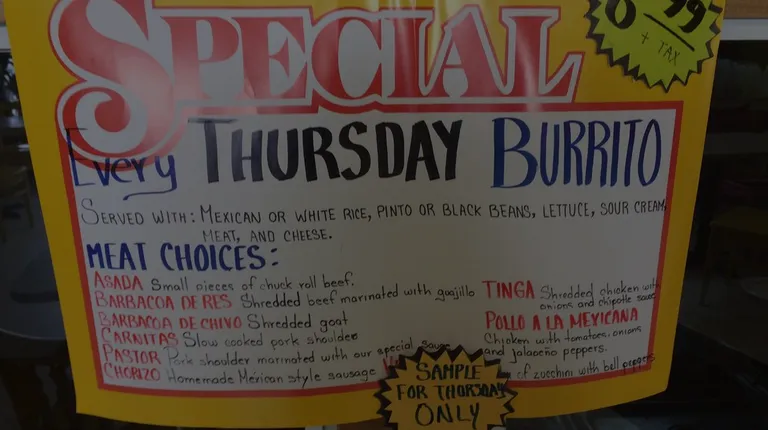 SPECIAL
99
+ TAX
Every THURSDAY BURRITO
SERVED WITH: MEXICAN OR WHITE RICE, PINTO OR BLACK BEANS, LETTUCE, SOUR CREAM,
MEAT, AND CHEESE.
MEAT CHOICES:
ASADA Small pieces of chuck roll beef.
BARBACOA DE RES Shredded beef marinated with guajillo
BARBACOA DE CHIVO Shredded goat
CARNITAS Slow cooked pork shoulder
PASTOR Pork shoulder marinated with our special sauce
CHORIZO Homemade Mexican style sausage
TINGA Shredded chicken with
onions and chipotle sauce
POLLO A LA MEXICANA
Chicken with tomatoes, onions
and jalapeño peppers.
of zucchini with bell peppers
SAMPLE
FOR THURSDAY
ONLY